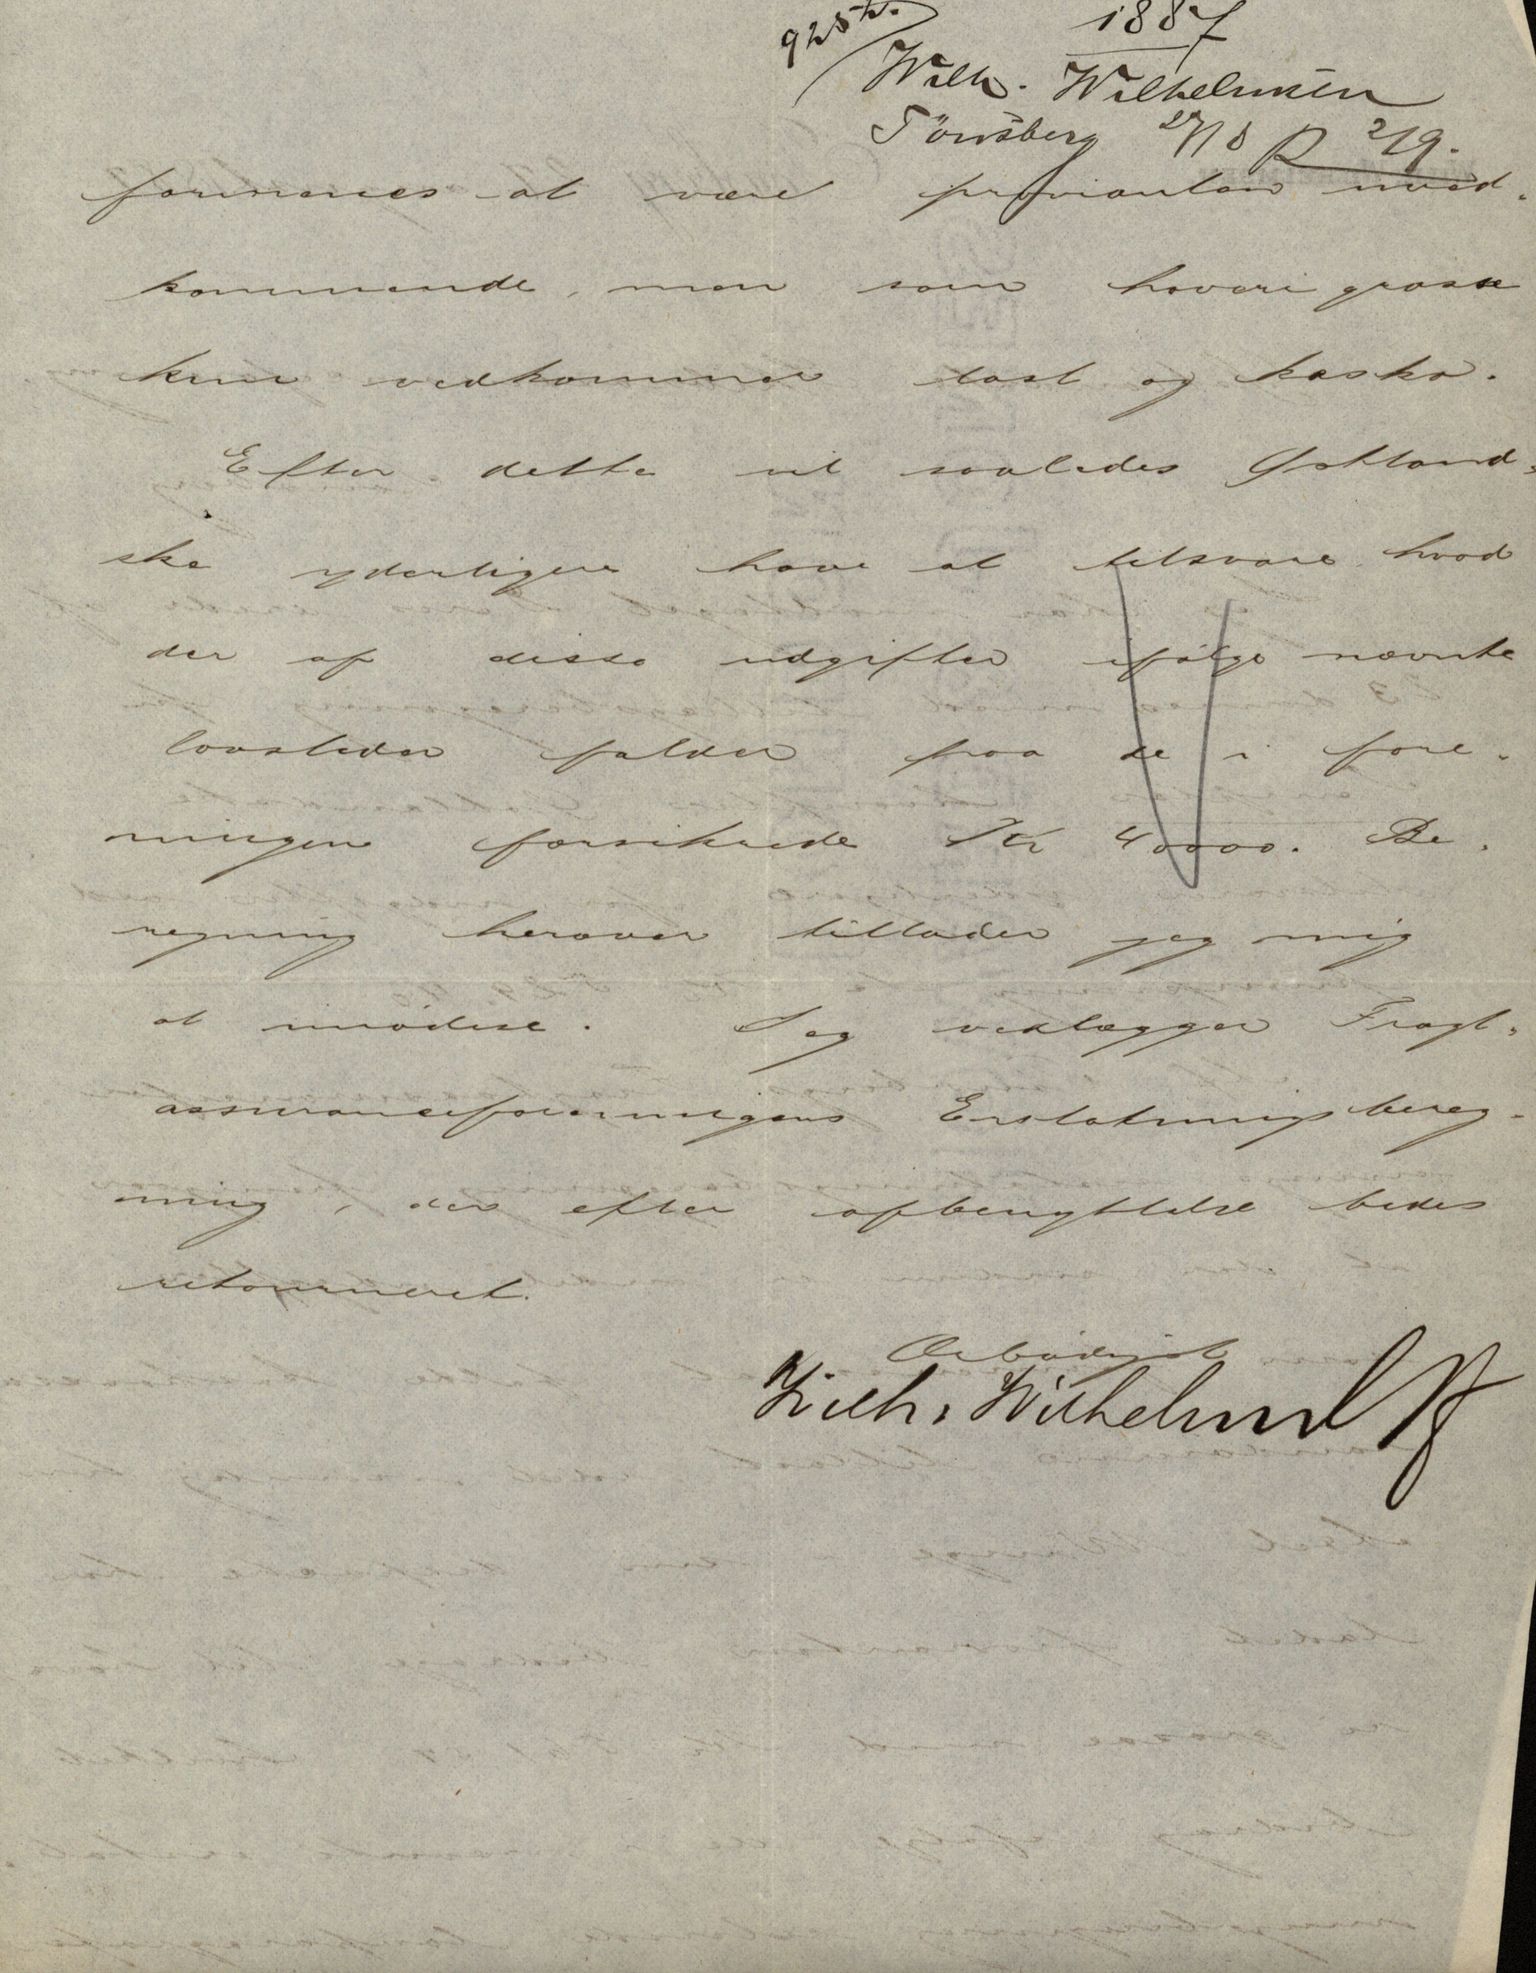 1887
Wilh. Wilhelmsen
Tönsberg 27/8 R 2/9.
formenes at være provianten uved-
kommende, men som havari grosse
kun vedkommer last og kasko.
Efter dette vil saaledes Gotland-
ske yderligere have at tilsvare hvad
der af disse udgifter ifølge nævnte
lovsteder falder paa de i fore-
ningen forsikrede Kr 40000. Be-
regning herover tillader jeg mig
at imødese. Jeg vedlægger Fragt-
assuranceforeningens Erstatningsbereg-
ning, der efter afbenyttelse bedes
retourneret.
Ærbødigst
Wilh. Wilhelmsen